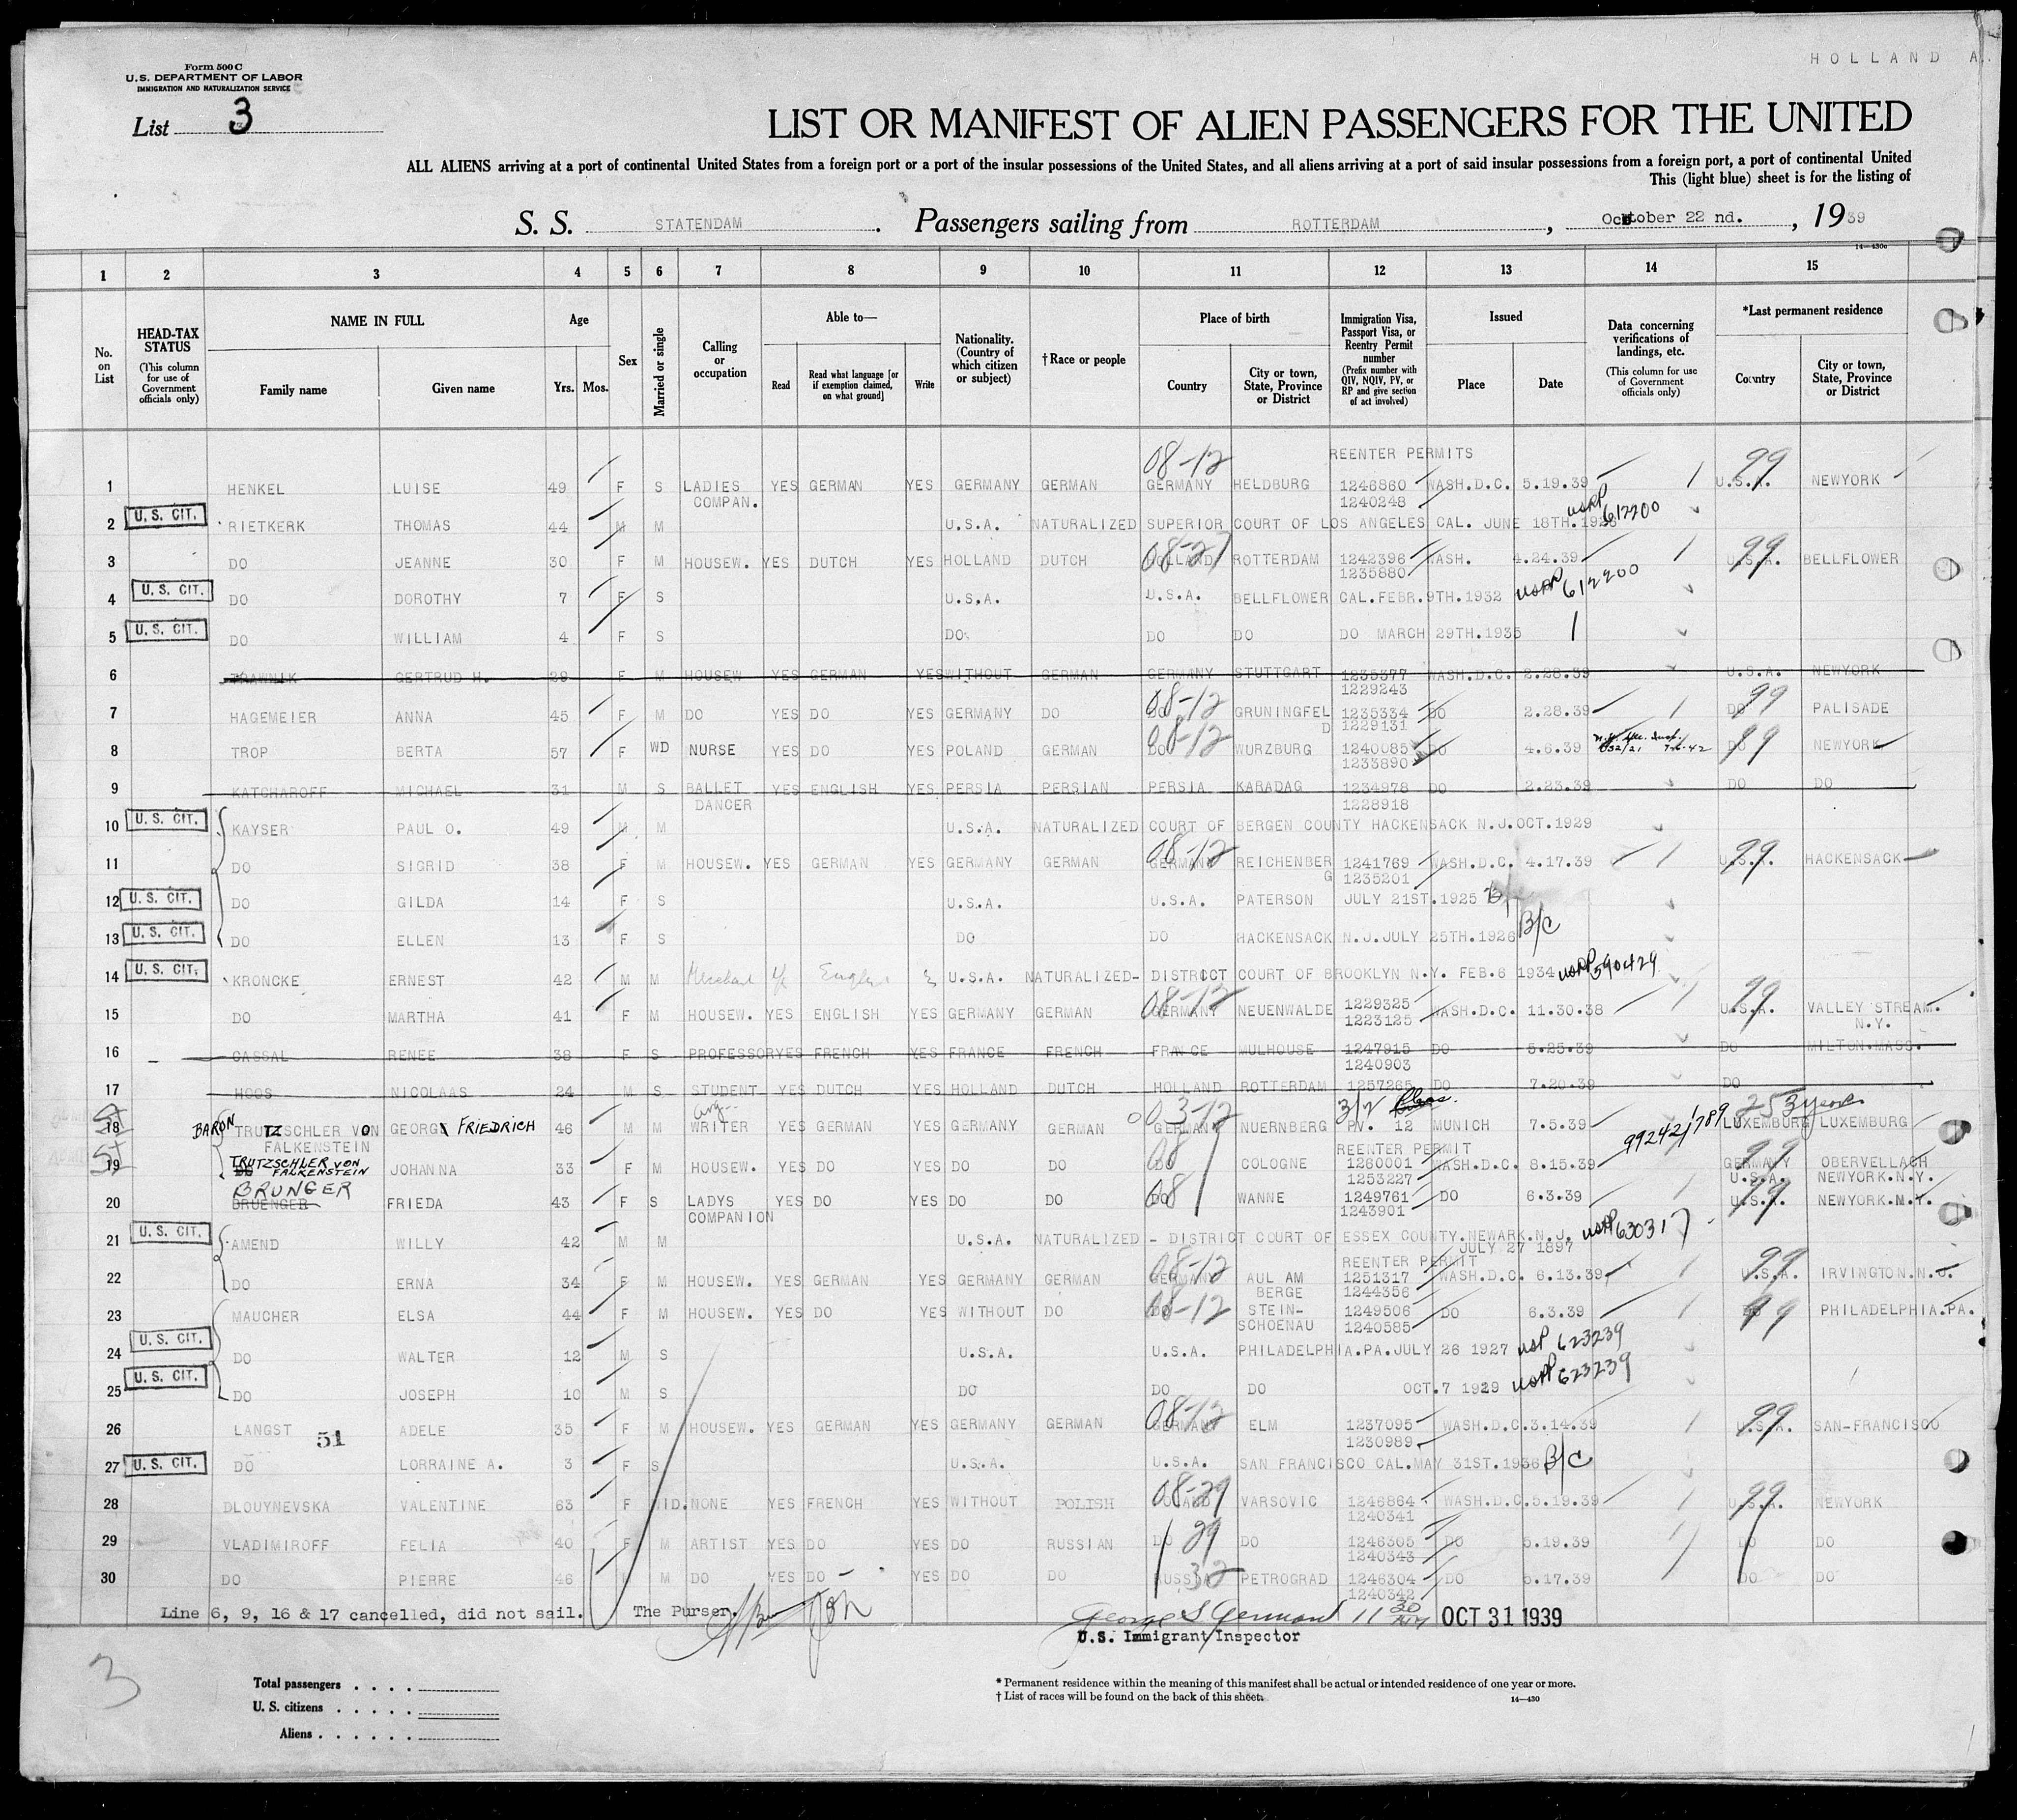 HOLLAND A.
Form 500 C
U.S. DEPARTMENT OF LABOR
IMMIGRATION AND NATURALIZATION SERVICE
List 3
LIST OR MANIFEST OF ALIEN PASSENGERS FOR THE UNITED
ALL ALIENS arriving at a port of continental United States from a foreign port or a port of the insular possessions of the United States, and all aliens arriving at a port of said insular possessions from a foreign port, a port of continental United
This (light blue) sheet is for the listing of
S. S. STATENDAM . Passengers sailing from ROTTERDAM , October 22 nd. , 1939
14—430c
1 2 3 4 5 6 7 8 9 10 11 12 13 14 15
No. on List
HEAD-TAX STATUS (This column for use of Government officials only)
NAME IN FULL
Family name Given name
Age
Yrs. Mos.
Sex
Married or single
Calling or occupation
Able to—
Read
Read what language [or if exemption claimed, on what ground]
Write
Nationality. (Country of which citizen or subject)
† Race or people
Place of birth
Country
City or town, State, Province or District
Immigration Visa, Passport Visa, or Reentry Permit number (Prefix number with QIV, NQIV, PV, or RP and give section of act involved)
Issued
Place Date
Data concerning verifications of landings, etc. (This column for use of Government officials only)
*Last permanent residence
Country
City or town, State, Province or District
08-12 REENTER PERMITS 99
1 HENKEL LUISE 49 F S LADIES YES GERMAN YES GERMANY GERMAN GERMANY HELDBURG 1246860 WASH.D.C. 5.19.39 1 U.S.A. NEWYORK
COMPAN. 1240248
2 U. S. CIT. RIETKERK THOMAS 44 M M U.S.A. NATURALIZED SUPERIOR COURT OF LOS ANGELES CAL. JUNE 18TH.1928 612200
3 DO JEANNE 30 F M HOUSEW. YES DUTCH YES HOLLAND DUTCH 08-27 HOLLAND ROTTERDAM 1242396 WASH. 4.24.39 1 99 U.S.A. BELLFLOWER
1235880
4 U. S. CIT. DO DOROTHY 7 F S U.S.A. U.S.A. BELLFLOWER CAL.FEBR.9TH.1932 612200
5 U. S. CIT. DO WILLIAM 4 F S DO DO DO DO MARCH 29TH.1935 1
6 GERTRUD H. 29 F M HOUSEW YES GERMAN YES WITHOUT GERMAN GERMANY STUTTGART 1235377 WASH.D.C. 2.28.39 U.S.A. NEWYORK
1229243
7 HAGEMEIER ANNA 45 F M DO YES DO YES GERMANY DO 08-12 DO GRUNINGFEL 1235334 DO 2.28.39 1 DO 99 PALISADE
D 1229131
8 TROP BERTA 57 F WD NURSE YES DO YES POLAND GERMAN 08-12 DO WURZBURG 1240085 DO 4.6.39 DO 99 NEWYORK
1233890
9 KATCHAROFF MICHAEL 31 M S BALLET YES ENGLISH YES PERSIA PERSIAN PERSIA KARADAG 1234978 DO 2.23.39 DO DO
DANCER 1228918
10 U. S. CIT. KAYSER PAUL O. 49 M M U.S.A. NATURALIZED COURT OF BERGEN COUNTY HACKENSACK N.J.OCT.1929
11 DO SIGRID 38 F M HOUSEW. YES GERMAN YES GERMANY GERMAN 08-12 GERMANY REICHENBER 1241769 WASH.D.C. 4.17.39 1 99 U.S.A. HACKENSACK
G 1235201
12 U. S. CIT. DO GILDA 14 F S U.S.A. U.S.A. PATERSON JULY 21ST.1925
13 U. S. CIT. DO ELLEN 13 F S DO DO HACKENSACK N.J.JULY 25TH.1926 B/C
14 U. S. CIT. KRONCKE ERNEST 42 M M U.S.A. NATURALIZED- DISTRICT COURT OF BROOKLYN N.Y. FEB.6 1934 590429
15 DO MARTHA 41 F M HOUSEW. YES ENGLISH YES GERMANY GERMAN 08-12 GERMANY NEUENWALDE 1229325 WASH.D.C. 11.30.38 1 99 U.S.A. VALLEY STREAM.
1223125 N.Y.
16 CASSAL RENEE 38 F S PROFESSOR YES FRENCH YES FRANCE FRENCH FRANCE MULHOUSE 1247915 DO 5.25.39 DO MILTON.MASS.
1240903
17 HOOS NICOLAAS 24 M S STUDENT YES DUTCH YES HOLLAND DUTCH HOLLAND ROTTERDAM 1257265 DO 7.20.39 DO
18 BARON TRUTZSCHLER VON GEORG FRIEDRICH 46 M M WRITER YES GERMAN YES GERMANY GERMAN 03-12 GERMANY NUERNBERG 3/2 PV. 12 MUNICH 7.5.39 99242/789 LUXEMBURG LUXEMBURG
FALKENSTEIN REENTER PERMIT
19 TRUTZSCHLER VON FALKENSTEIN JOHANNA 33 F M HOUSEW. YES DO YES DO DO 08 DO COLOGNE 1260001 WASH.D.C. 8.15.39 GERMANY OBERVELLACH
1253227 U.S.A. NEWYORK.N.Y.
BRUNGER
20 BRUENGER FRIEDA 43 F S LADYS YES DO YES DO DO 08 DO WANNE 1249761 DO 6.3.39 1 99 U.S.A. NEWYORK.N.Y.
COMPANION 1243901
21 U. S. CIT. AMEND WILLY 42 M M U.S.A. NATURALIZED - DISTRICT COURT OF ESSEX COUNTY.NEWARK.N.J. 630317
JULY 27 1897
REENTER PERMIT
22 DO ERNA 34 F M HOUSEW. YES GERMAN YES GERMANY GERMAN 08-12 GERMANY AUL AM 1251317 WASH.D.C. 6.13.39 1 99 U.S.A. IRVINGTON.N.J.
BERGE 1244356
23 MAUCHER ELSA 44 F M HOUSEW. YES DO YES WITHOUT DO 08-12 DO STEIN- 1249506 DO 6.3.39 1 99 DO PHILADELPHIA.PA.
SCHOENAU 1240585
24 U. S. CIT. DO WALTER 12 M S U.S.A. U.S.A. PHILADELPHIA.PA.JULY 26 1927 623239
25 U. S. CIT. DO JOSEPH 10 M S DO DO DO OCT.7 1929 623239
26 LANGST ADELE 35 F M HOUSEW. YES GERMAN YES GERMANY GERMAN 08-12 GERMANY ELM 1237095 WASH.D.C. 3.14.39 1 99 U.S.A. SAN-FRANCISCO
51 1230989
27 U. S. CIT. DO LORRAINE A. 3 F S U.S.A. U.S.A. SAN FRANCISCO CAL.MAY 31ST.1936 B/C
28 DLOUYNEVSKA VALENTINE 63 F WID. NONE YES FRENCH YES WITHOUT POLISH 08-29 VARSOVIC 1246864 WASH.D.C. 5.19.39 1 99 U.S.A. NEWYORK
1240341
29 VLADIMIROFF FELIA 40 F M ARTIST YES DO YES DO RUSSIAN DO 29 DO 1246305 DO 5.19.39 1 DO DO
1240343
30 DO PIERRE 46 M DO YES DO YES DO DO RUSSIA 32 PETROGRAD 1246304 DO 5.17.39 DO DO
1240342
Line 6, 9, 16 & 17 cancelled, did not sail. The Purser. George S Germond 11 30 AM OCT 31 1939
U.S. Immigrant Inspector
3
Total passengers . . . .
U. S. citizens . . . . .
Aliens . . . . . .
* Permanent residence within the meaning of this manifest shall be actual or intended residence of one year or more.
† List of races will be found on the back of this sheet.
14—430